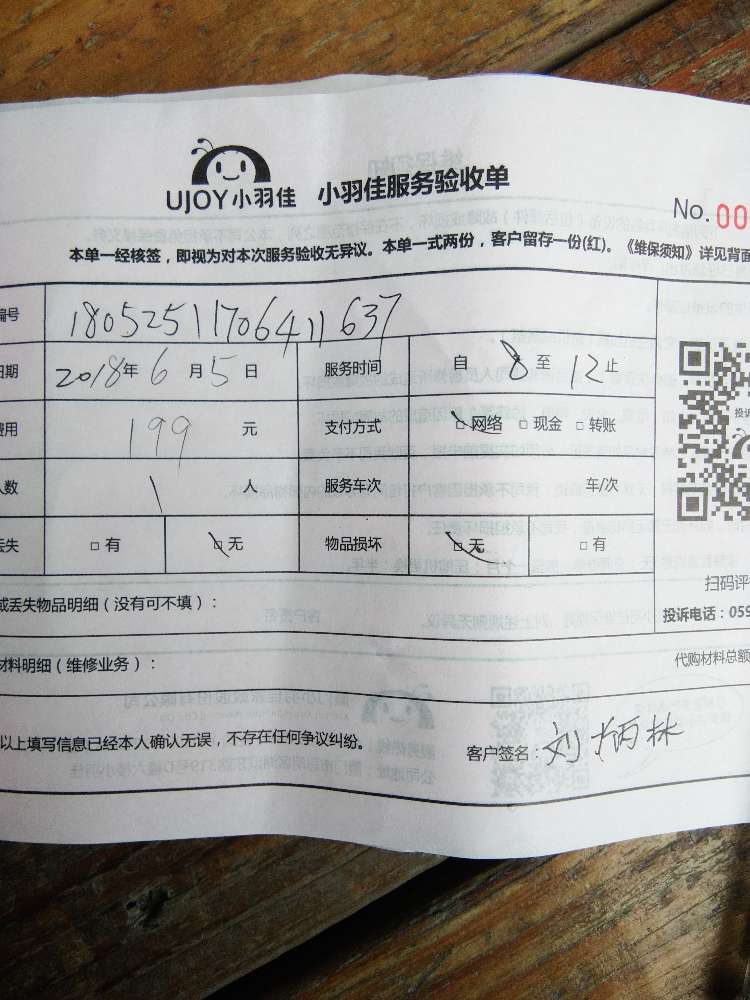 UJOY小羽佳 小羽佳服务验收单
No.00
本单一经核签，即视为对本次服务验收无异议。本单一式两份，客户留存一份(红)。《维保须知》详见背面
编号 18052511706411637
日期 2018年6月5日 服务时间 自8至12止
费用 199元 支付方式 □网络 □现金 □转账
人数 1人 服务车次 车/次
丢失 □有 □无 物品损坏 □无 □有
扫码评
或丢失物品明细（没有可不填）：
投诉电话：059
材料明细（维修业务）：
代购材料总额
以上填写信息已经本人确认无误，不存在任何争议纠纷。
客户签名：刘炳林